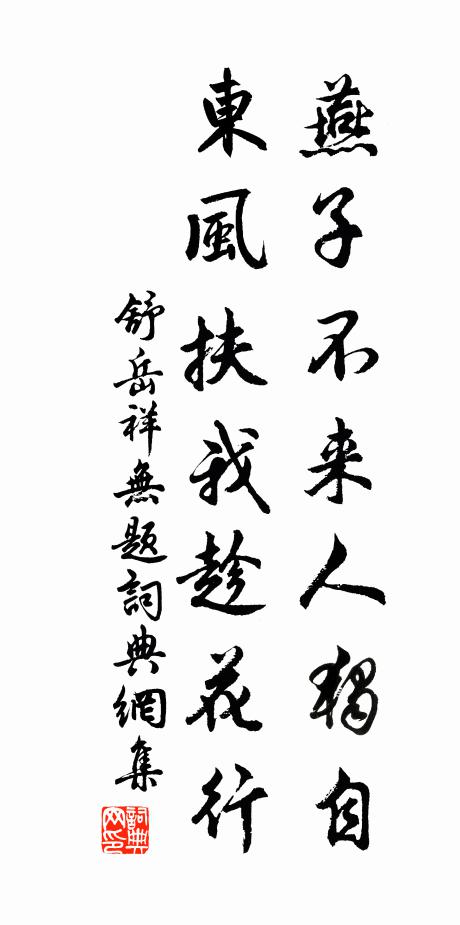 燕子不来人獨自
東風扶我趁花行
舒岳祥無題詞典網集
詞典网印